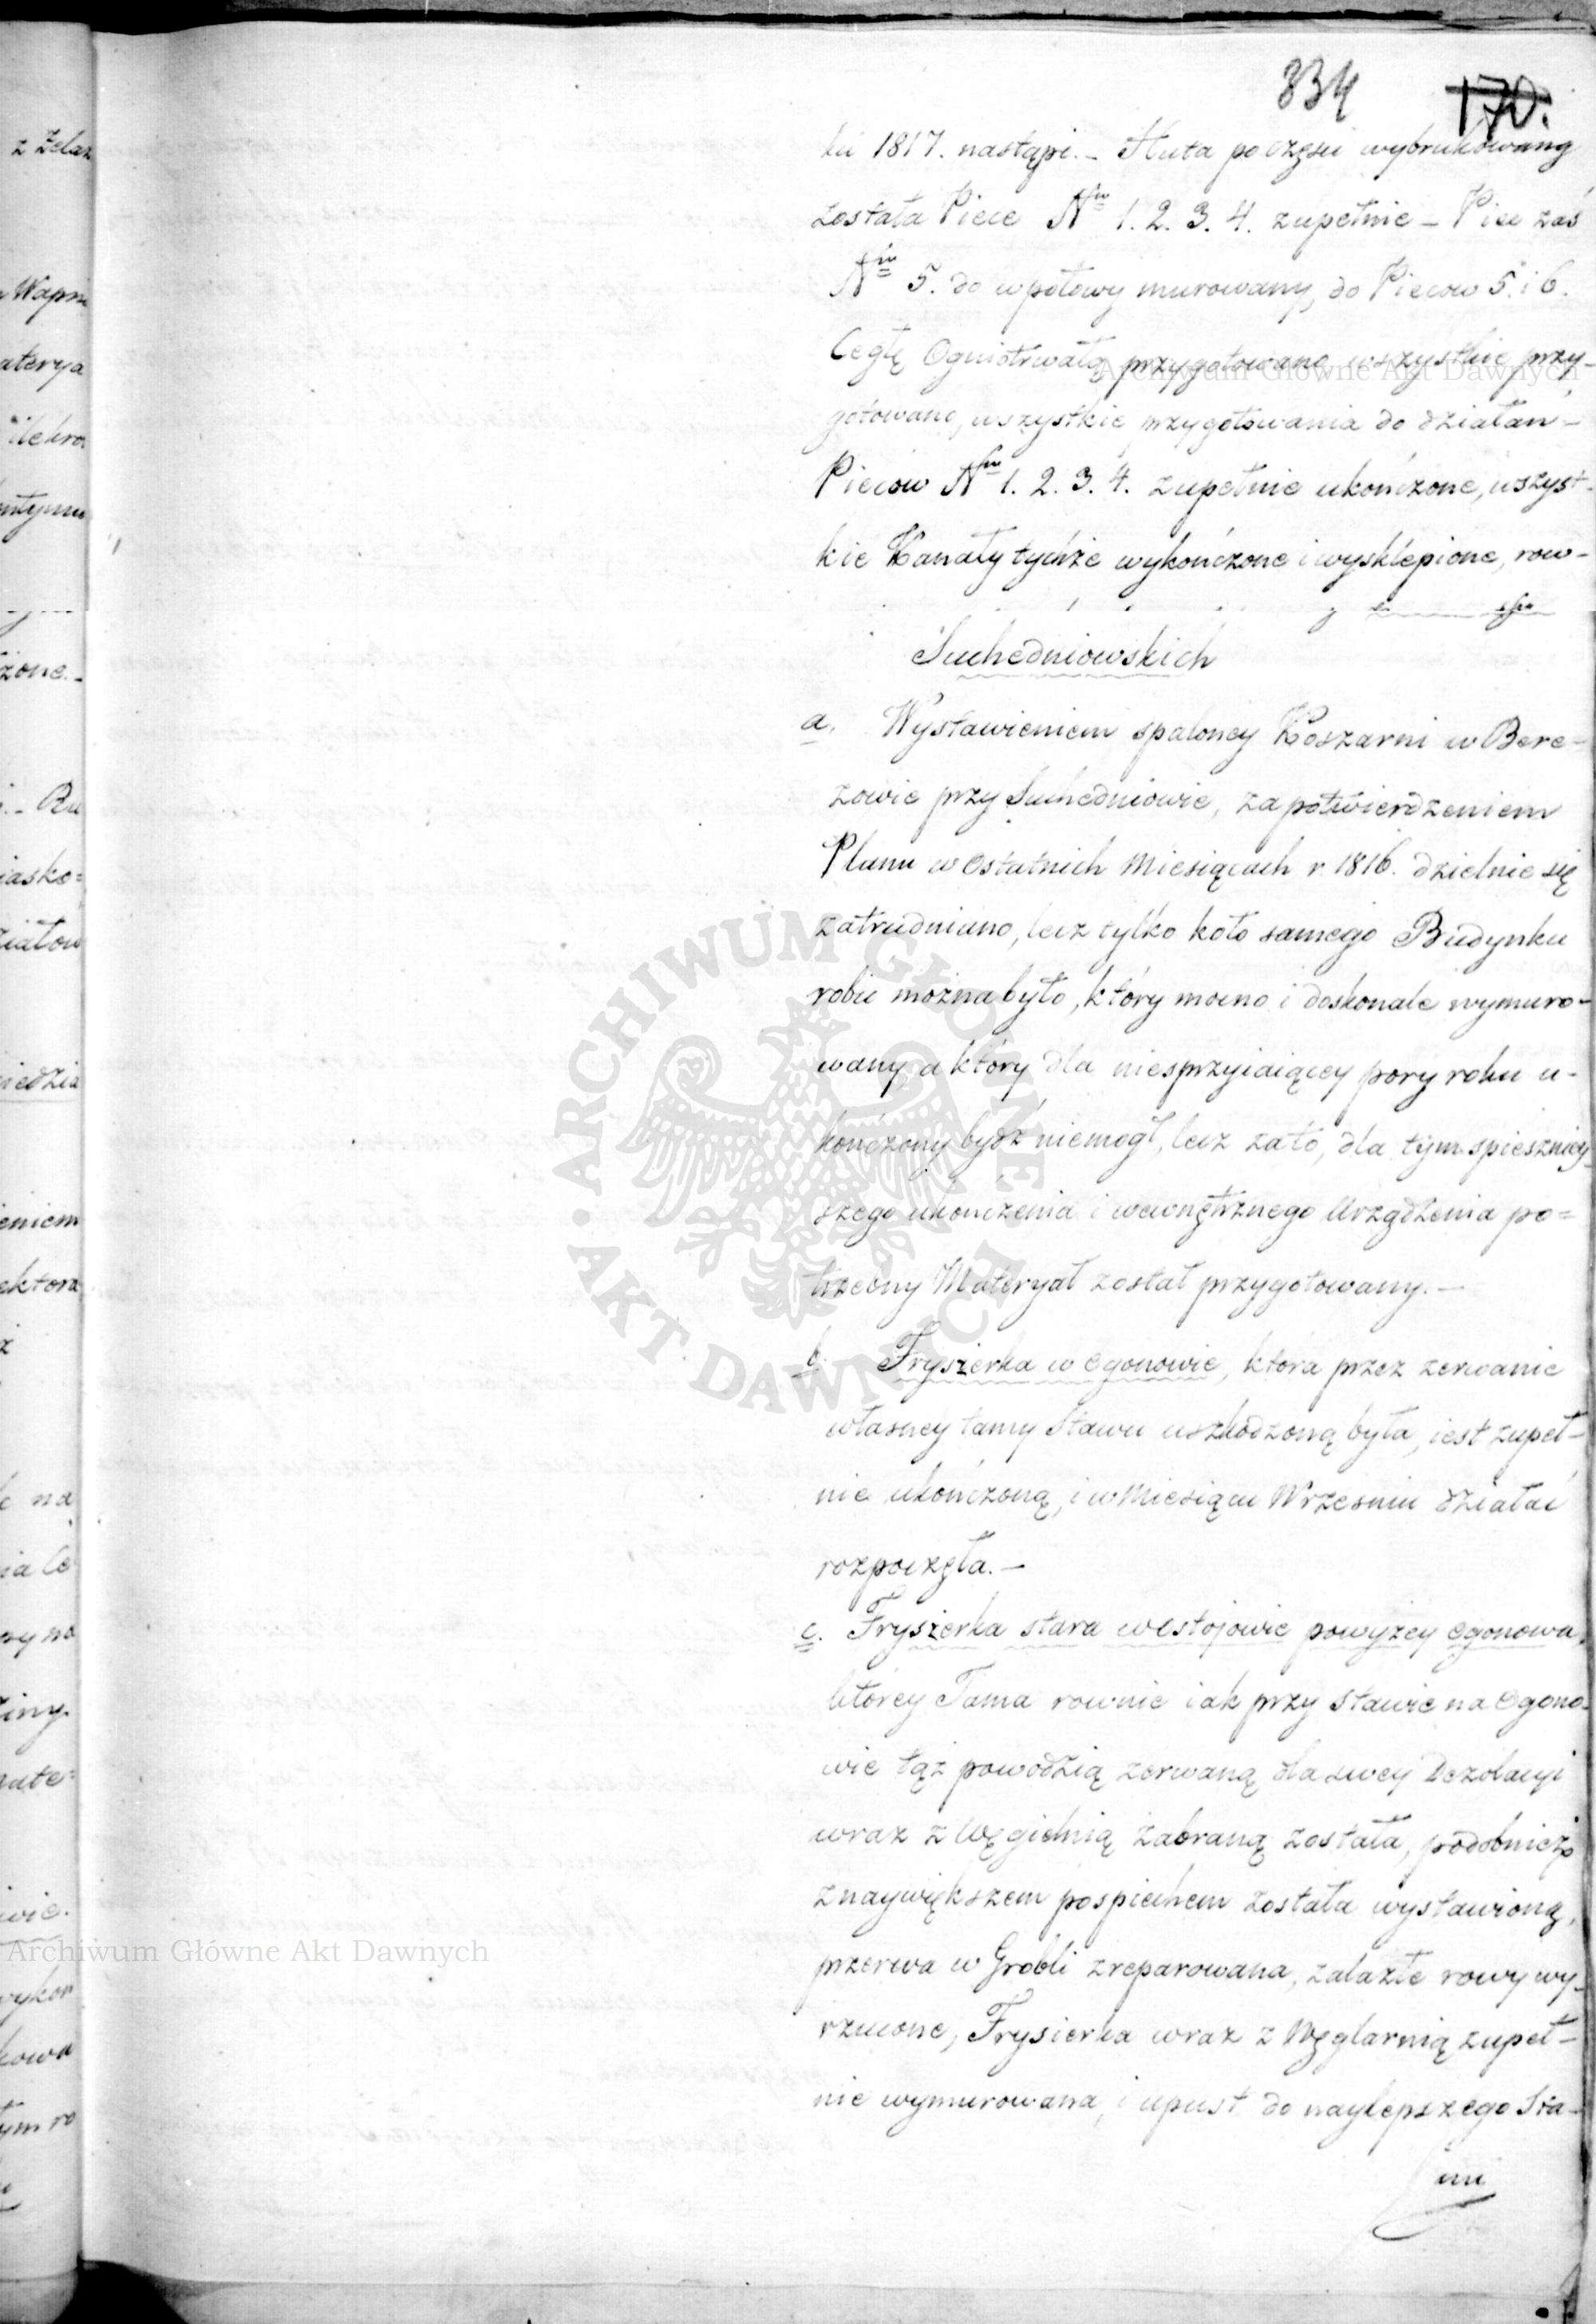 834 170.
ku 1817. nastąpi. – Huta po części wybrukowaną
została Piece Nro 1. 2. 3. 4. zupełnie – Piec zaś
Nro 5. do wpołowy murowany, do Piecow 5. i 6.
Cegłę Ogniotrwałą przygotowano wszystkie przy-
gotowano, wszystkie przygotowania do działań –
Pieców Nro 1. 2. 3. 4. zupełnie ukończone, wszyst-
kie Kanały tychże wykończone i wysklepione, row-
Suchedniowskich
a. Wystawieniem spaloney Koszarni w Bere-
zowie przy Suchedniowie, za potwierdzeniem
Planu w Ostatnich Miesiącach r. 1816. dzielnie się
zatrudniano, lecz tylko koło samego Budynku
robić można było, który mocno i doskonale wymuro-
wany a który dla niesprzyiaiącey pory roku u-
kończony bydź niemogł, lecz zato, dla tym spieszniey
szego ukończenia i wewnętrznego Urządzenia po=
trzebny Materyał został przygotowany. –
b. Fryszerka w Ogonowie, która przez zerwanie
własney tamy Stawu uszkodzoną była, iest zupeł-
nie ukończoną, i w Miesiącu Wrzesniu działać
rozpoczęła. –
c. Fryszerka stara w Ostojowie powyżey Ogonowa,
którey Tama rownie iak przy Stawie na Ogono-
wie tąż powodzią zerwaną dla swey Dezolacyi
wraz z Węgielnią zabraną została, podobnież
z naywiększem pospiechem została wystawioną,
przerwa w Grobli zreparowana, zalazłe rowy wy-
rzucone, Frysierka wraz z Węglarnią zupeł-
nie wymurowana, i upust do naylepszego Sta-
nu
z Żelaz
Wapn
aterya
żone. –
– Ru
iasko=
działow
iedzia
eniem
ektora
na
wie.
wykon
kowa
tym ro
Archiwum Główne Akt Dawnych
Archiwum Główne Akt Dawnych
ARCHIWUM GŁÓWNE AKT DAWNYCH